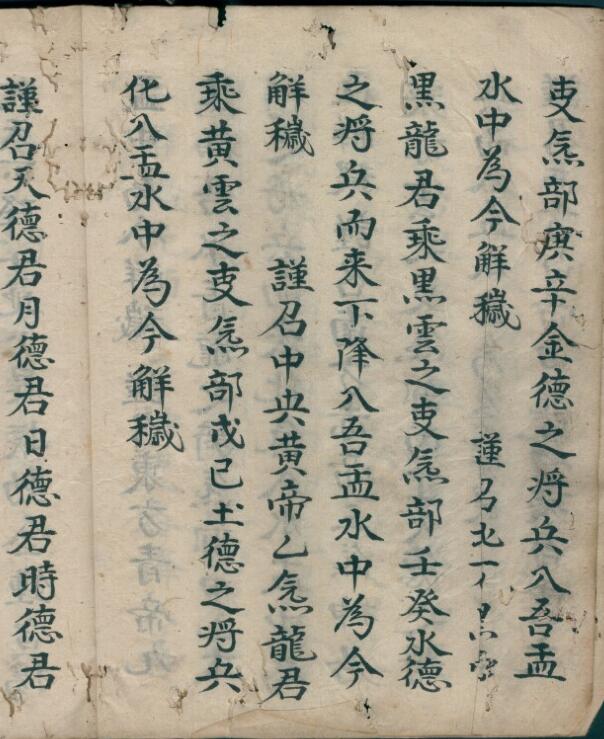 吏炁部庚辛金德之将兵入吾盂
水中為今觧穢　謹召北
黒龍君乘黒雲之吏炁部壬癸水德
之将兵而来下降入吾盂水中為今
觧穢　謹召中央黄帝乙炁龍君
乘黄雲之吏炁部戊己土德之将兵
化入盂水中為今觧穢
謹召天德君月德君日德君時德君